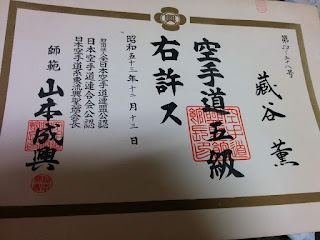 蔵谷 薫
空手道五級
右許ス
昭和五十三年十二月十三日
財団法人全日本空手道連盟公認
日本空手道連合会公認
日本空手道糸東流興聖塾会長
師範 山本成興